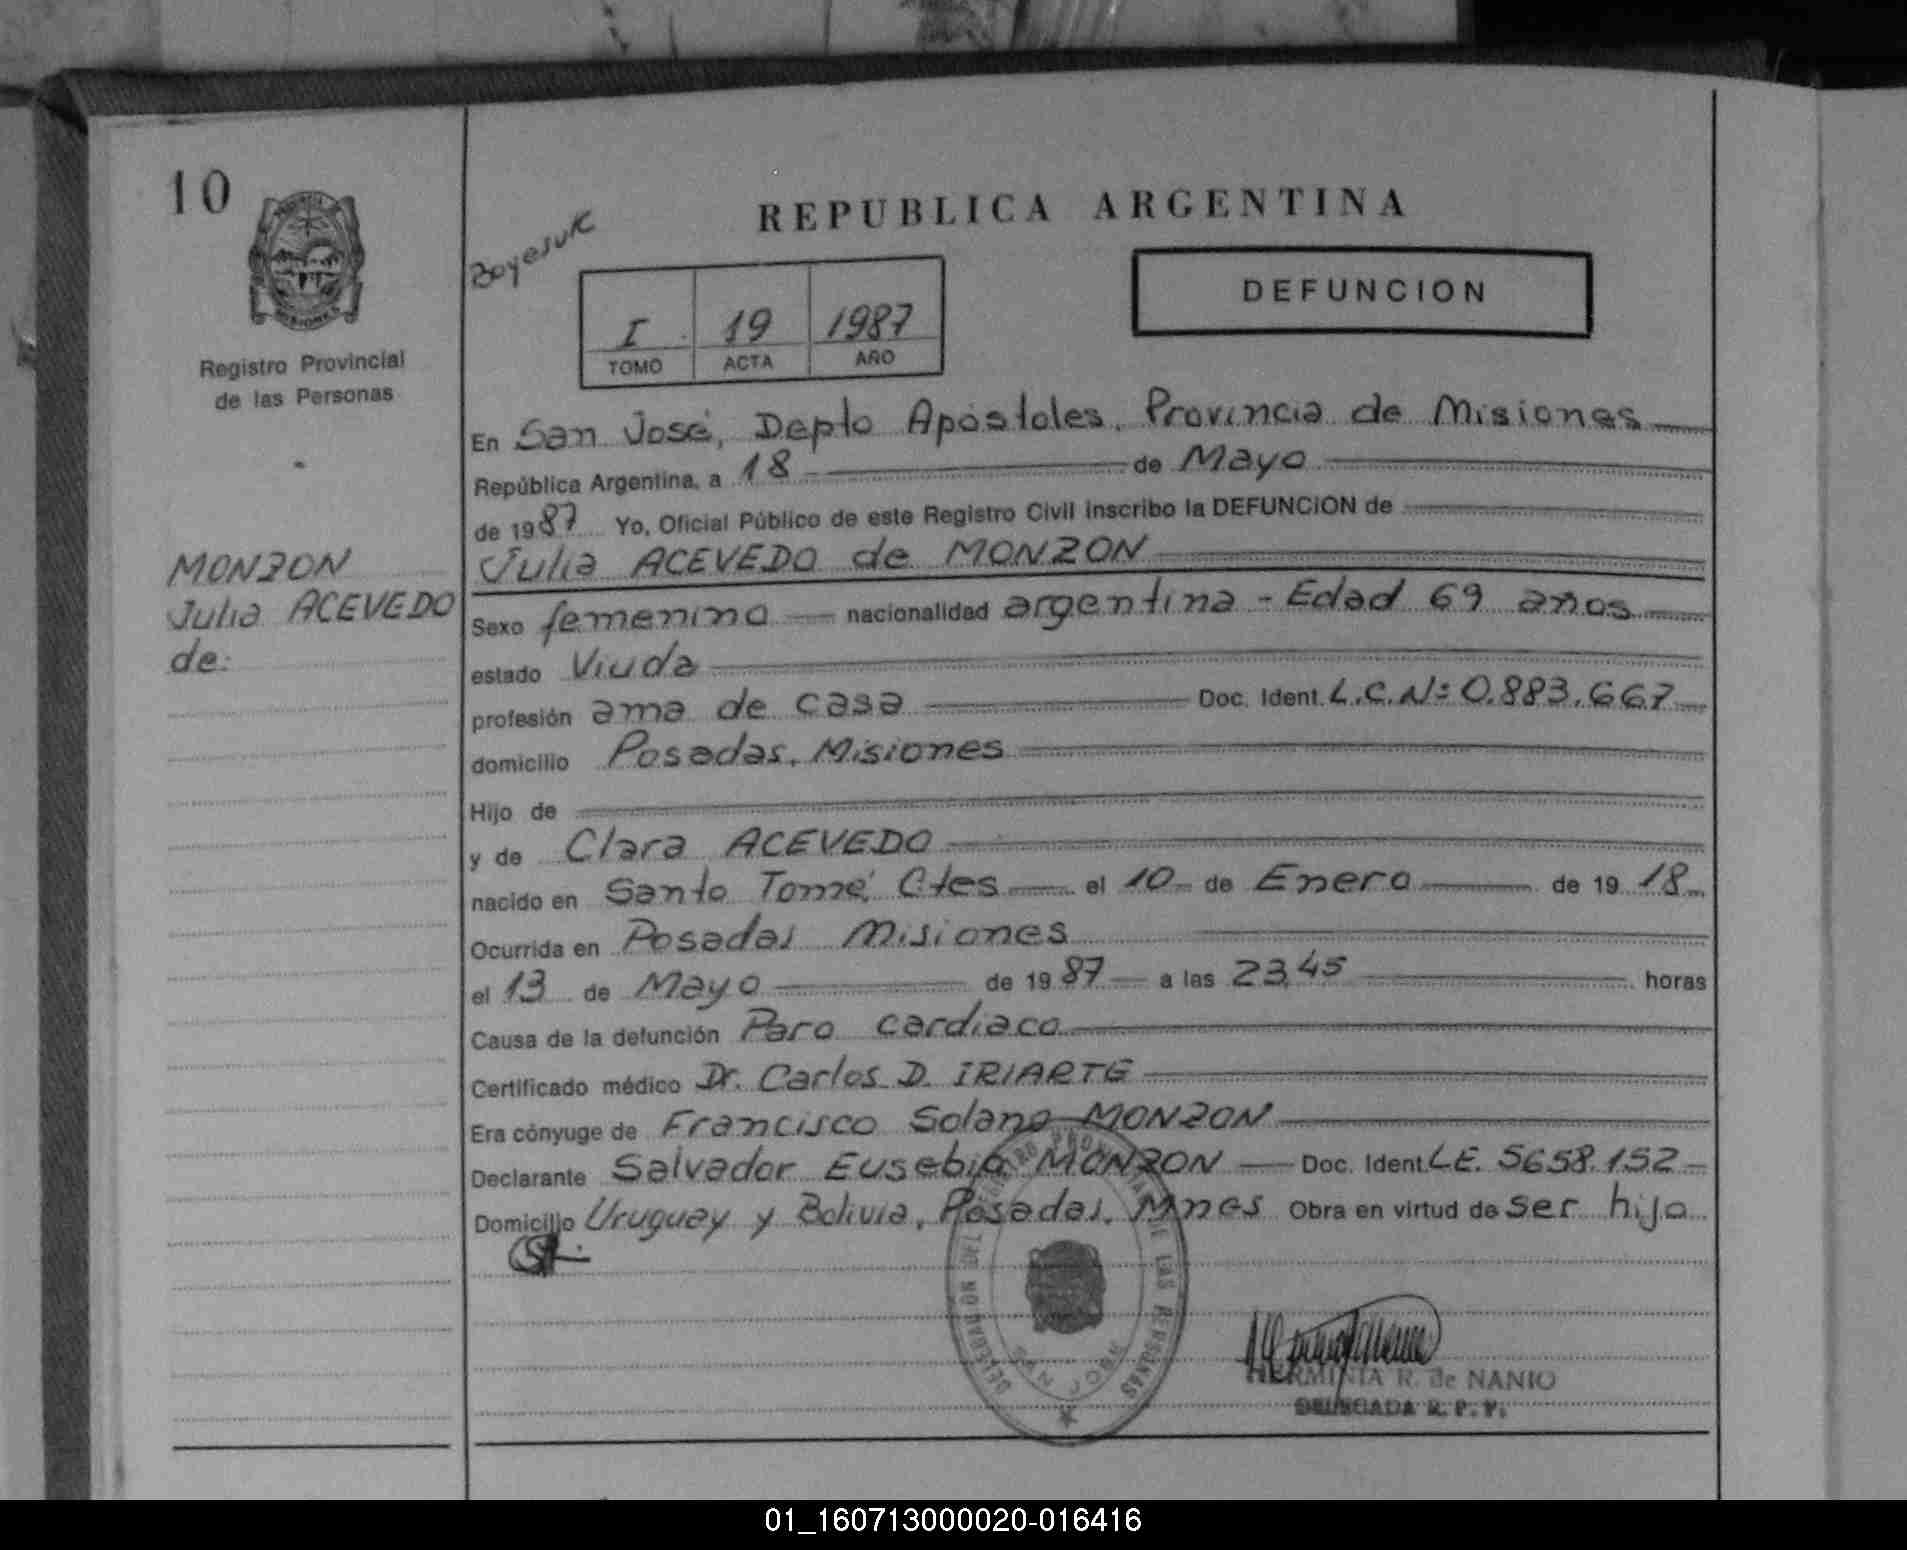 10
REPUBLICA ARGENTINA
Boyesuk
DEFUNCION
I 19 1987
TOMO ACTA AÑO
MISIONES
Registro Provincial
de las Personas
En San José, Depto Apóstoles, Provincia de Misiones
República Argentina, a 18 de Mayo
de 1987 Yo, Oficial Público de este Registro Civil inscribo la DEFUNCION de
Julia ACEVEDO de MONZON
MONZON
Julia ACEVEDO
de:
Sexo femenino nacionalidad argentina - Edad 69 años
estado Viuda
profesión ama de casa Doc. Ident. L.C.Nº 0.883.667
domicilio Posadas, Misiones
Hijo de
y de Clara ACEVEDO
nacido en Santo Tomé, Ctes el 10 de Enero de 1918
Ocurrida en Posadas Misiones
el 13 de Mayo de 1987 a las 23,45 horas
Causa de la defunción Paro cardiaco
Certificado médico Dr. Carlos D. IRIARTE
Era cónyuge de Francisco Solano MONZON
Declarante Salvador Eusebio MONZON Doc. Ident. L.E. 5658.152
Domicilio Uruguay y Bolivia, Posadas, Mnes Obra en virtud de ser hijo
DELEGACION DEL REGISTRO PROVINCIAL DE LAS PERSONAS
SAN JOSE
HERMINIA R. de NANIO
DELEGADA R. P. P.
01_160713000020-016416